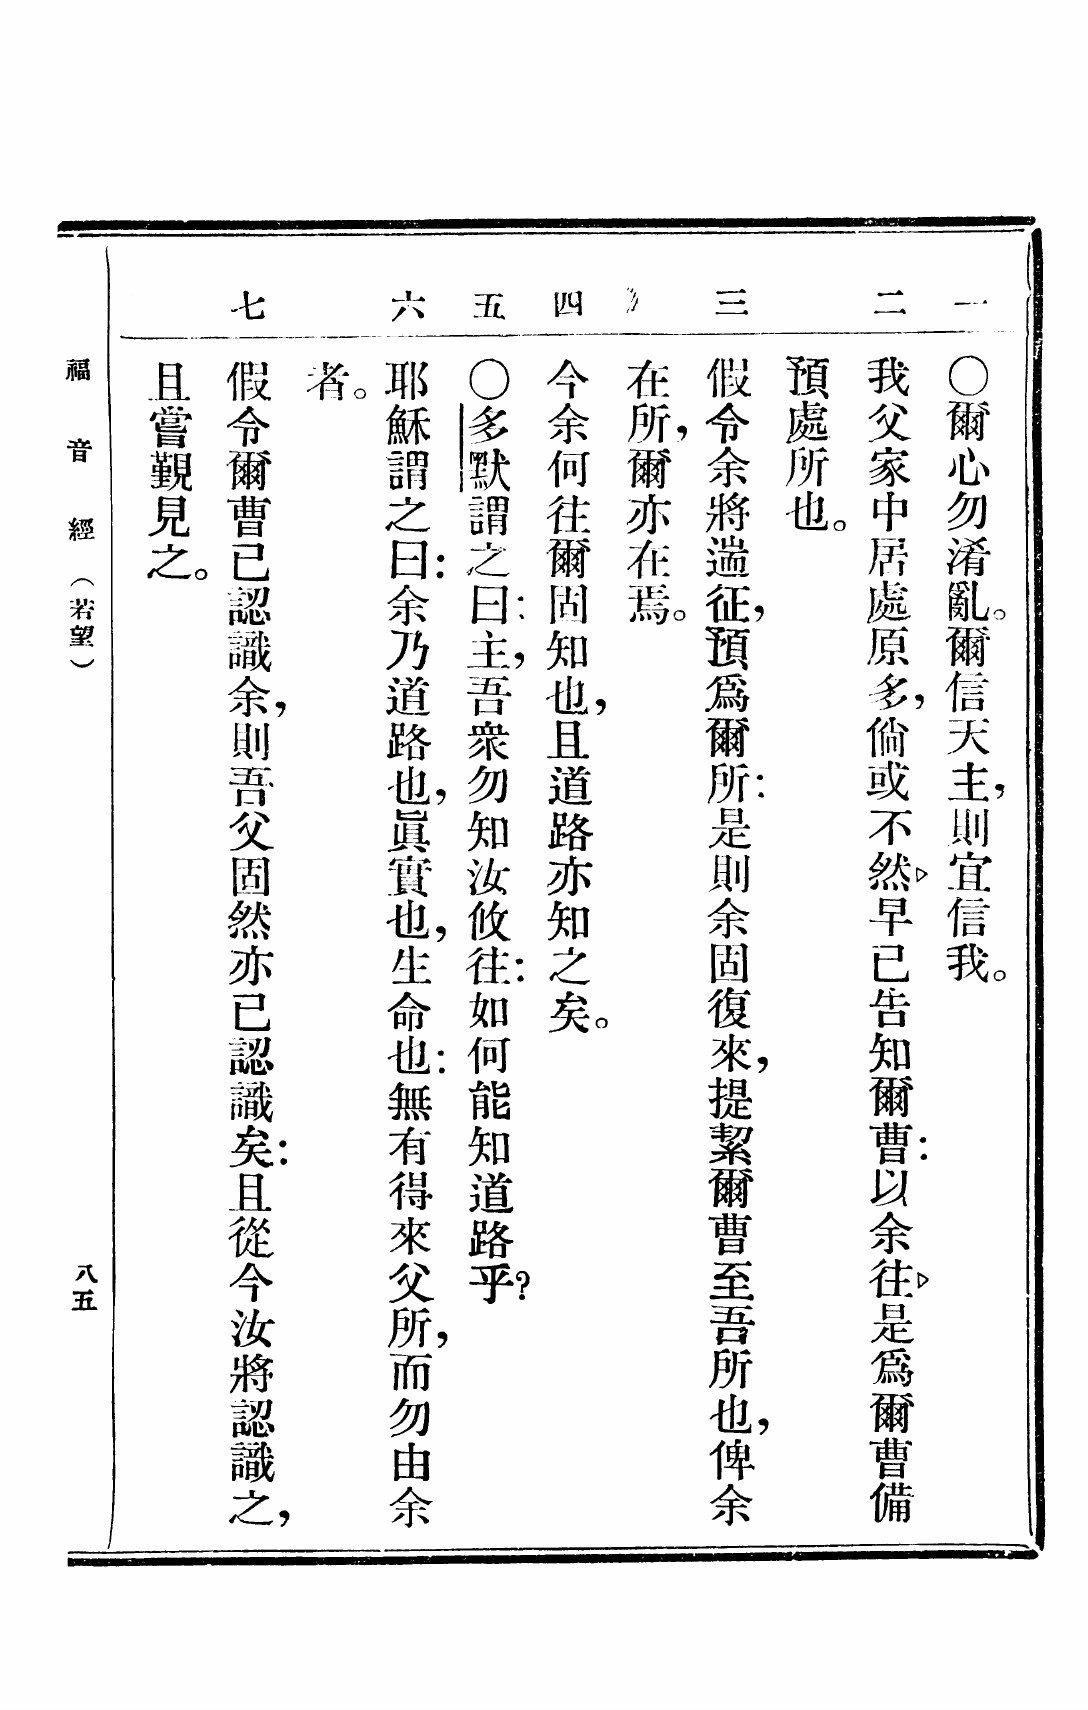 一
〇爾心勿淆亂。爾信天主，則宜信我。
二
我父家中居處原多，倘或不然▷早已告知爾曹：以余往▷是爲爾曹備
預處所也。
三
假令余將遄征，預爲爾所：是則余固復來，提挈爾曹至吾所也，俾余
在所，爾亦在焉。
四
今余何往爾固知也，且道路亦知之矣。
五
〇多默謂之曰：主，吾衆勿知汝攸往：如何能知道路乎？
六
耶穌謂之曰：余乃道路也，眞實也，生命也：無有得來父所，而勿由余
者。
七
假令爾曹已認識余，則吾父固然亦已認識矣：且從今汝將認識之，
且嘗覲見之。
福音經（若望）
八五